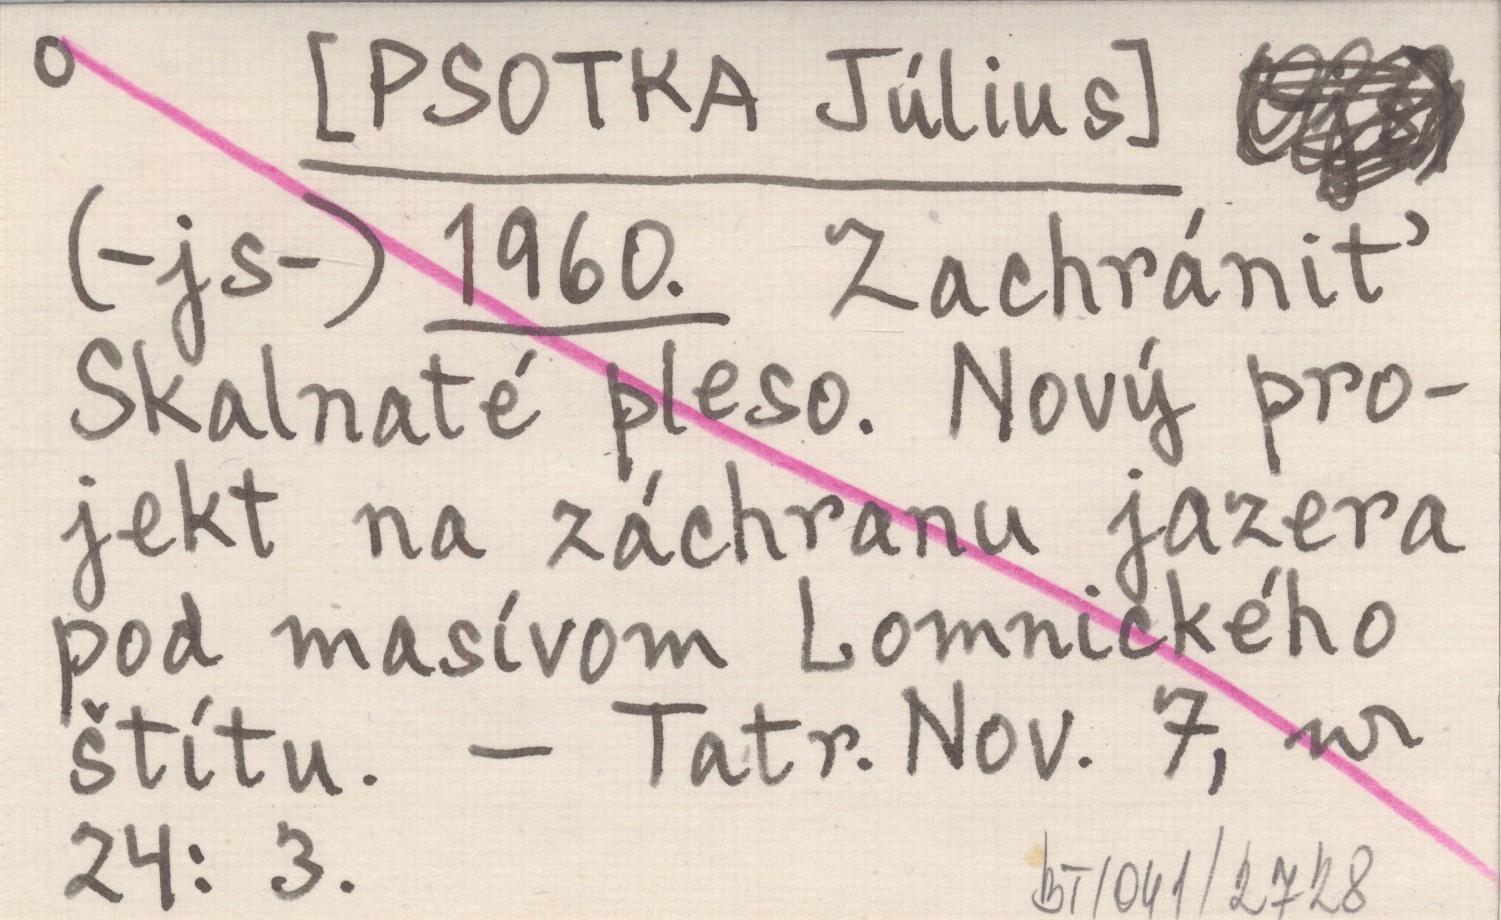 o [PSOTKA Július]
(-js-) 1960. Zachrániť
Skalnaté pleso. Nový pro-
jekt na záchranu jazera
pod masívom Lomnického
štítu. — Tatr. Nov. 7, nr
24: 3.
BT/041/2728